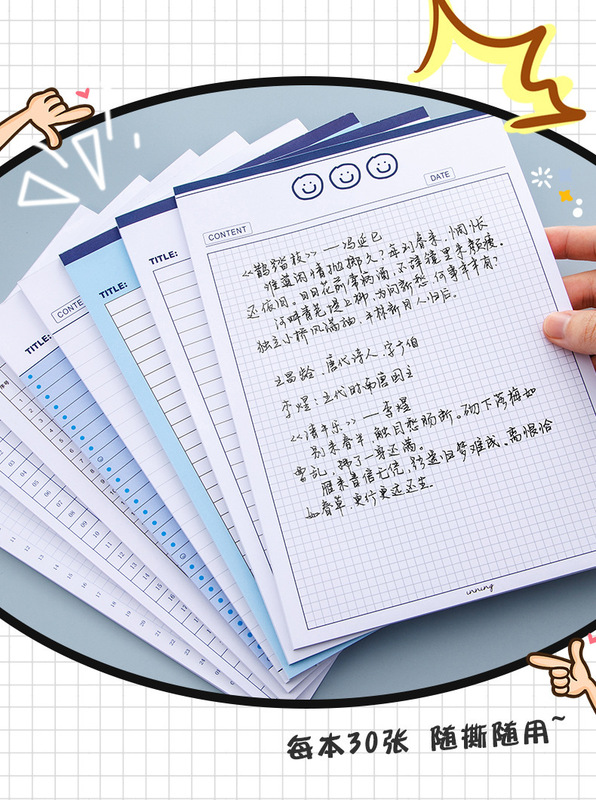 DATE
CONTENT
《鹊踏枝》——冯延巳
谁道闲情抛掷久?每到春来,惆怅
还依旧。日日花前常病酒,不辞镜里朱颜瘦。
河畔青芜堤上柳,为问新愁,何事年年有?
独立小桥风满袖,平林新月人归后。
王昌龄:唐代诗人,字少伯
李煜:五代时南唐国主
《清平乐》——李煜
别来春半,触目愁肠断。砌下落梅如
雪乱,拂了一身还满。
雁来音信无凭,路遥归梦难成。离恨恰
如春草,更行更远还生.
inning
TITLE:
TITLE:
TITLE:
每本30张 随撕随用~